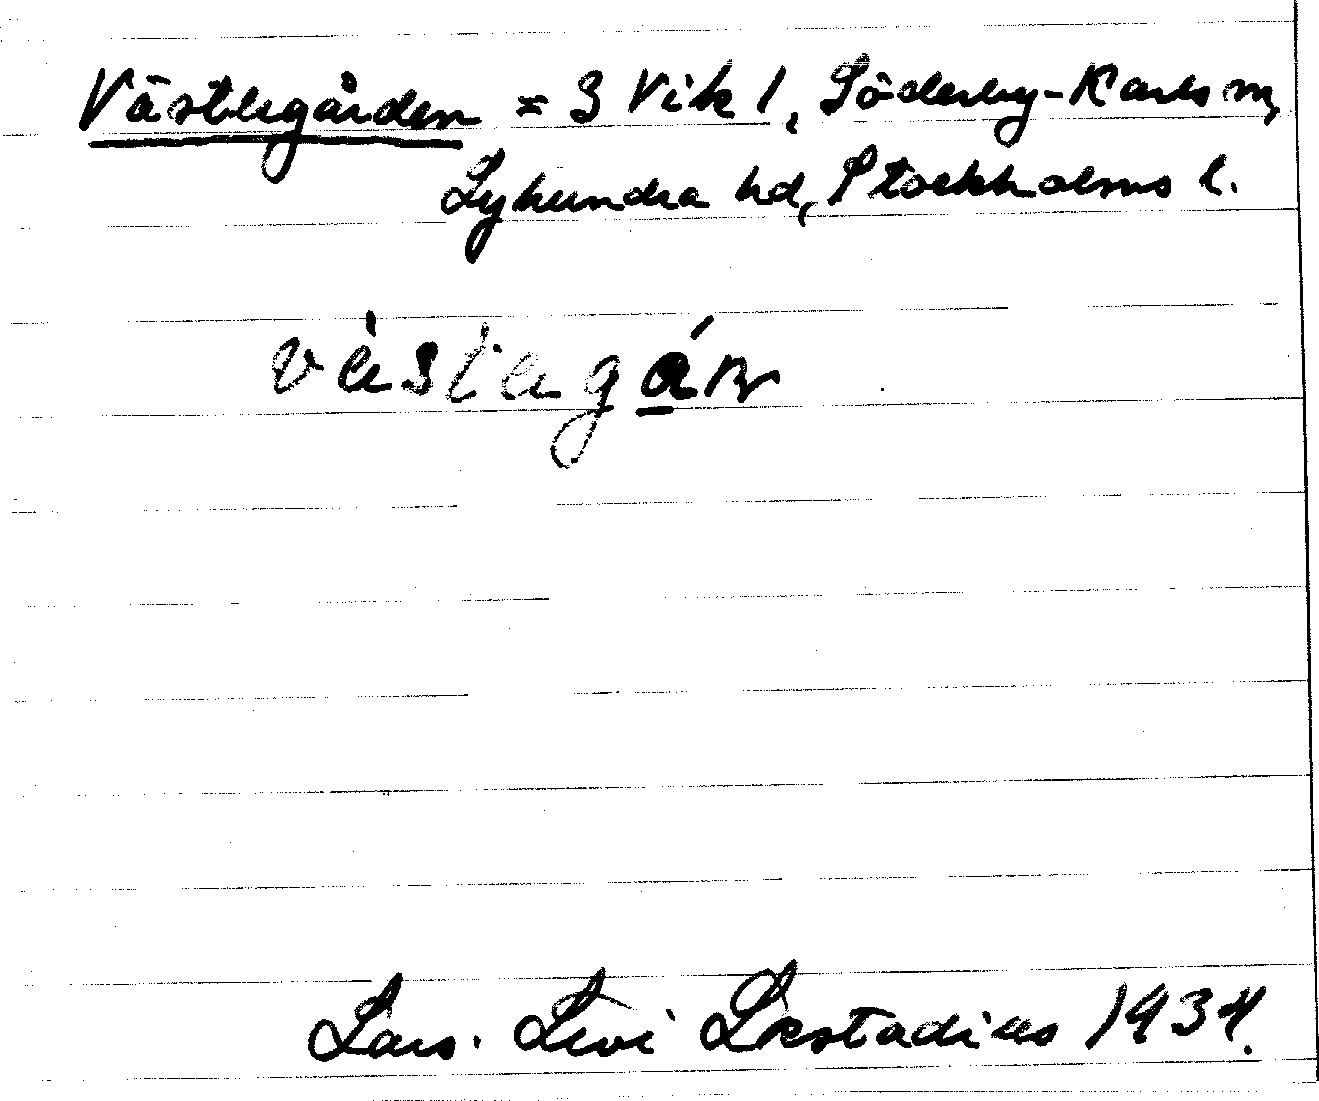 Västergården = 3 Vik 1, Söderby-Karls sn,
Lyhundra hd, Stockholms l.
Lars Levi Læstadius 1934.